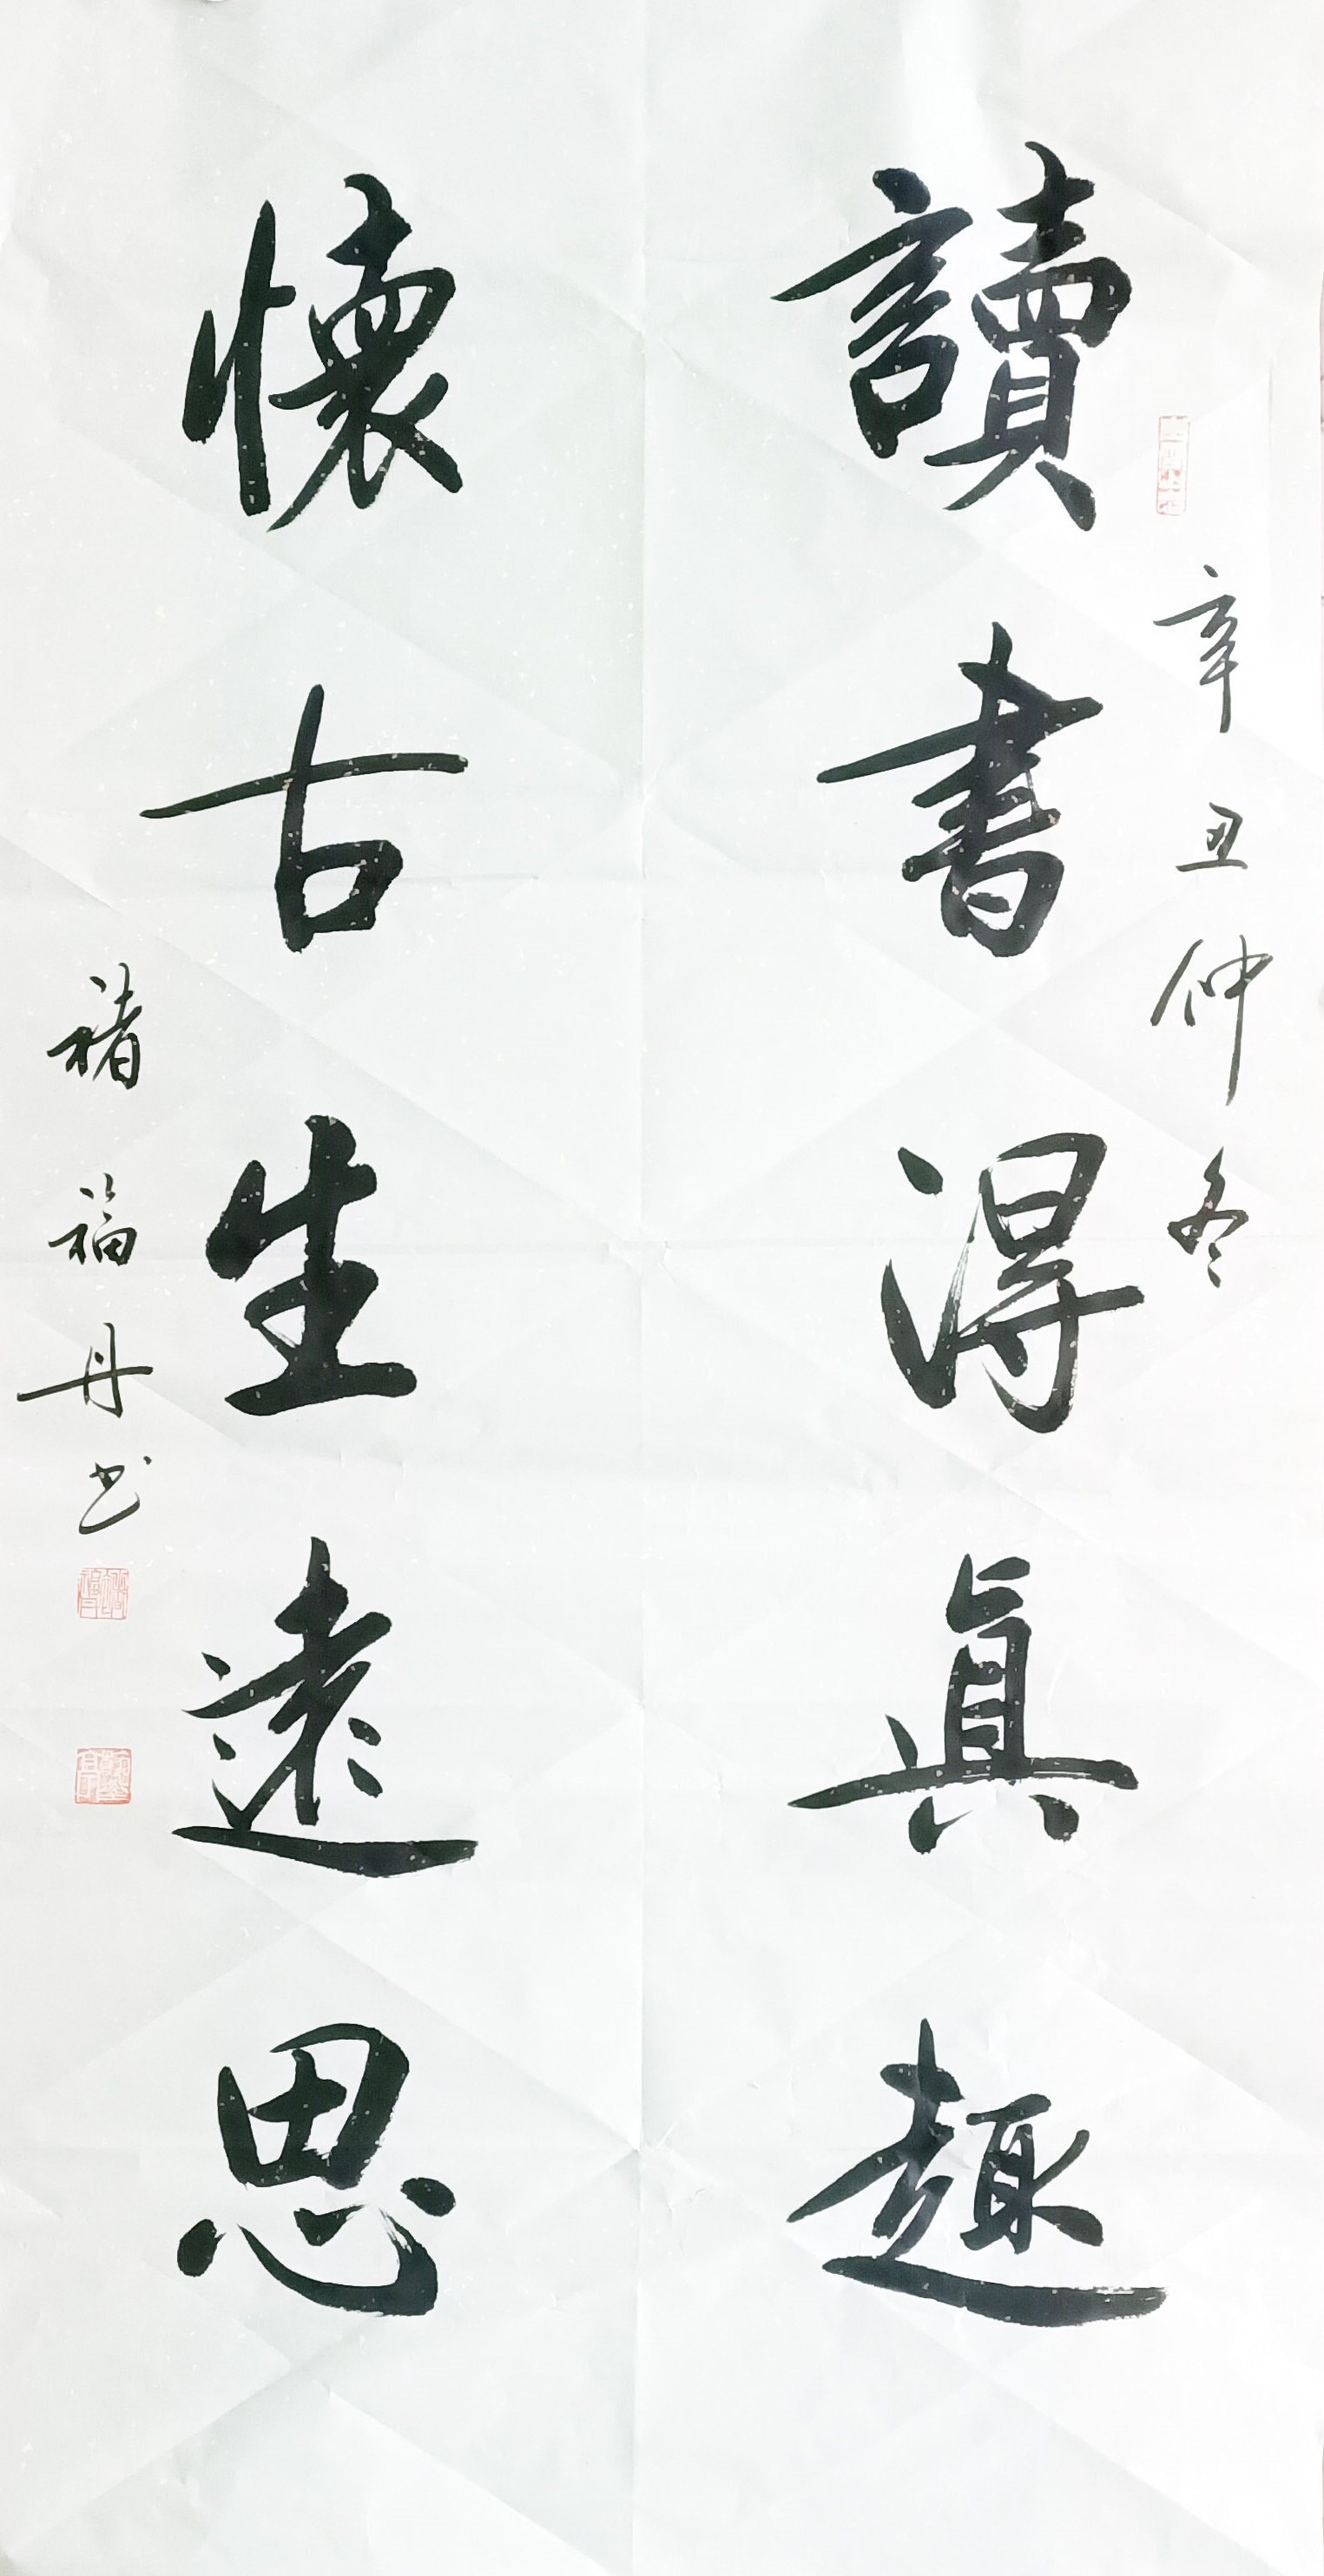 辛丑仲冬
讀書得真趣
懷古生遠思
褚福丹书